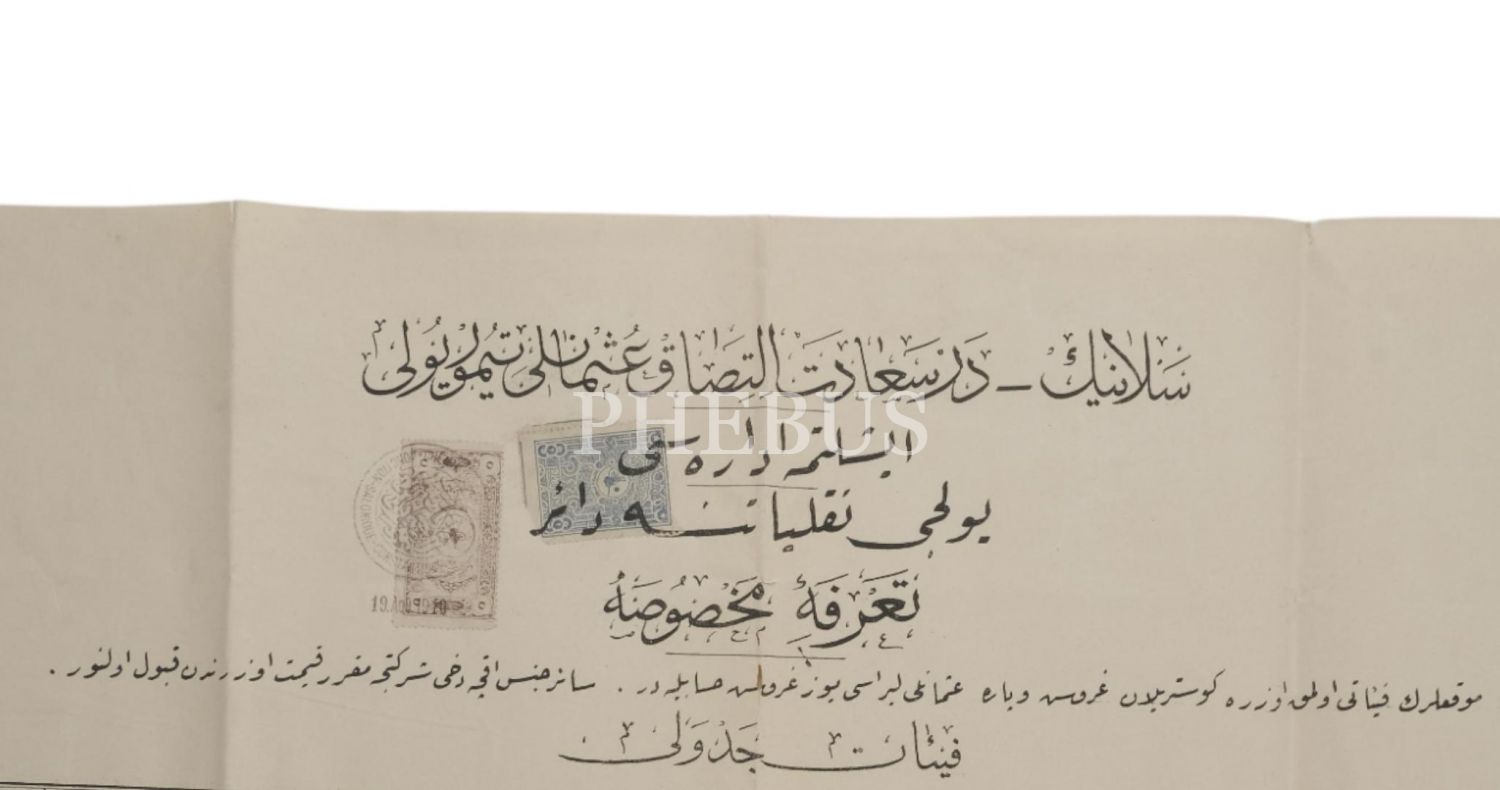 سلانیك – درسعادت التصاق عثمانلی تیمور یولی
PHEBUS
ایشلتمه اداره سی
یولجی نقلیاتنه دائر
تعرفهٔ مخصوصه
19 Aoû 1910
موقعلرك فیئاتی اولمق اوزره كوستریلان غروش و پاره عثمانلی لیراسی یوز غروش حسابیله در . سائر جنس اقچه دخی شركتجه مقرر قیمت اوزرندن قبول اولنور .
فیئات جدولی